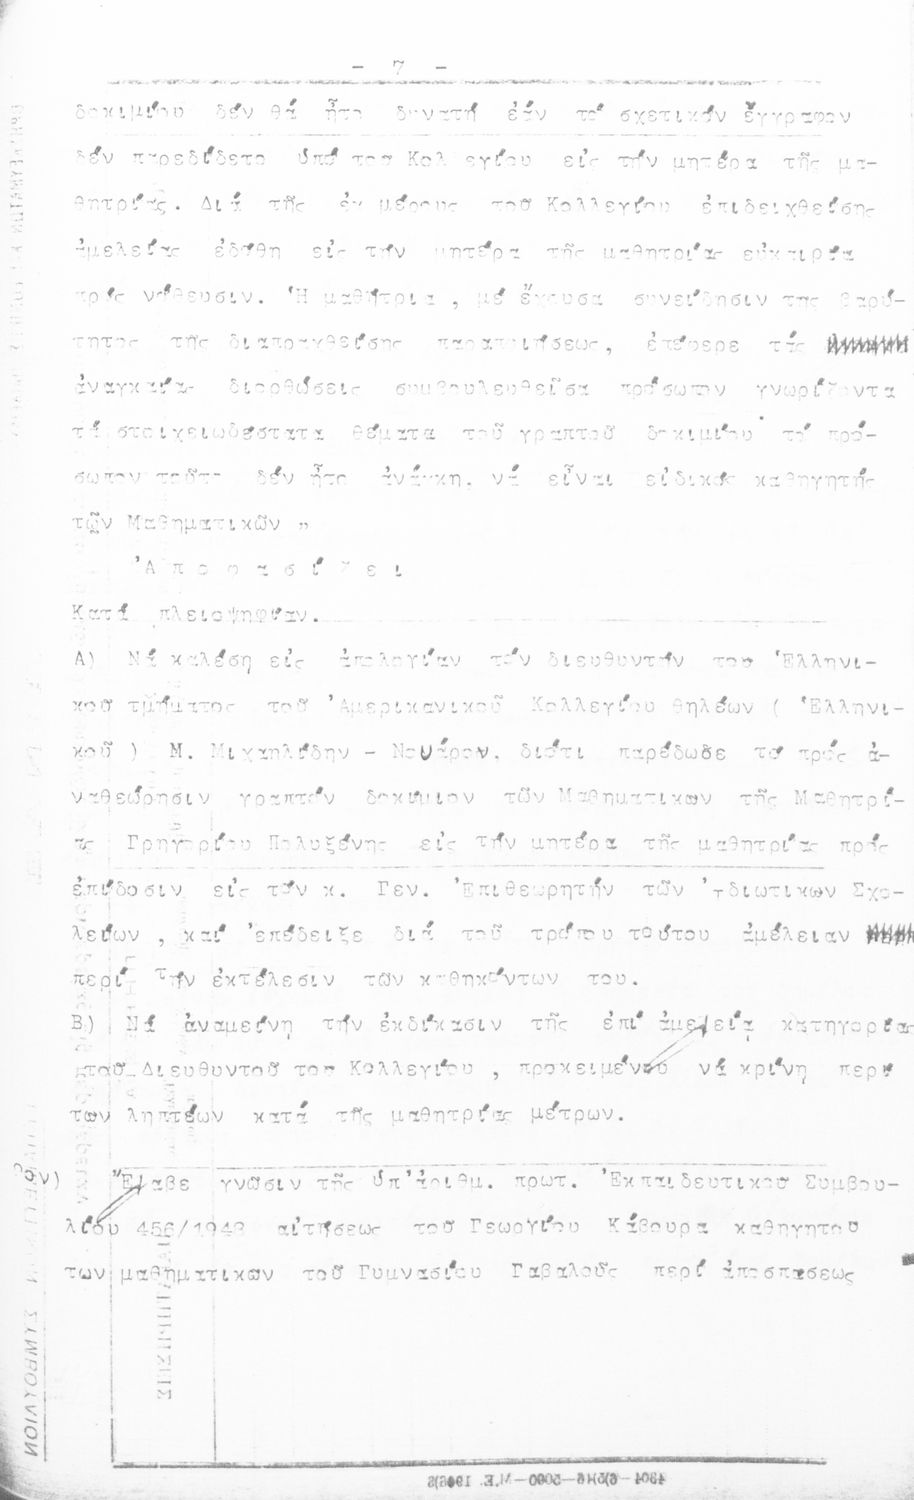 - 7 -
δοκιμίου δέν θά ἦτο δυνατή ἐάν τό σχετικόν ἔγγραφον
δέν παρεδίδετο ὑπό του Κολλεγίου εἰς τήν μητέρα τῆς μα-
θητρίας. Διά τῆς ἐκ μέρους τοῦ Κολλεγίου ἐπιδειχθείσης
ἀμελείας ἐδόθη εἰς τήν μητέρα τῆς μαθητρίας εὐκαιρία
πρός νόθευσιν. Ἡ μαθήτρια , μέ ἔχουσα συνείδησιν της βαρύ-
τητος τῆς διαπραχθείσης παραποιήσεως, ἐπέφερε τάς
ἀναγκαίας διορθώσεις συμβουλευθεῖσα πρόσωπον γνωρίζοντα
τά στοιχειωδέστατα θέματα τοῦ γραπτοῦ δοκιμίου τό πρό-
σωπον τοῦτο δέν ἦτο ἀνάγκη, νά εἶναι εἰδικός καθηγητής
τῶν Μαθηματικῶν "
Ἀ π ο φ α σ ί ζ ε ι
Κατά πλειοψηφίαν.
Α) Νά καλέση εἰς ἀπολογίαν τόν διευθυντήν του Ἑλληνι-
κοῦ τμήματος τοῦ Ἀμερικανικοῦ Κολλεγίου θηλέων ( Ἑλληνι-
κοῦ ) Μ. Μιχαηλίδην - Νουάρον, διότι παρέδωσε το πρός ἀ-
ναθεώρησιν γραπτόν δοκίμιον τῶν Μαθηματικων τῆς Μαθητρί-
ας Γρηγορίου Πολυξένης εἰς τήν μητέρα τῆς μαθητρίας πρός
ἐπίδοσιν εἰς τόν κ. Γεν. Ἐπιθεωρητήν τῶν Ἰδιωτικων Σχο-
λείων , καί ἐπέδειξε διά τοῦ τρόπου τούτου ἀμέλειαν
περί τήν ἐκτέλεσιν τῶν καθηκόντων του.
Β) Νά ἀναμείνη τήν ἐκδίκασιν τῆς ἐπί ἀμελείᾳ κατηγορίας
τοῦ Διευθυντοῦ του Κολλεγίου , προκειμένου νά κρίνη περί
των ληπτέων κατά τῆς μαθητρίας μέτρων.
ον) Ἔλαβε γνῶσιν τῆς ὑπ' ἀριθμ. πρωτ. Ἐκπαιδευτικοῦ Συμβου-
λίου 456/1948 αἰτήσεως τοῦ Γεωργίου Κάβουρα καθηγητοῦ
των μαθηματικων τοῦ Γυμνασίου Γαβαλοῦς περί ἀποσπασεως
ΣΥΜΒΟΥΛΙΟΝ